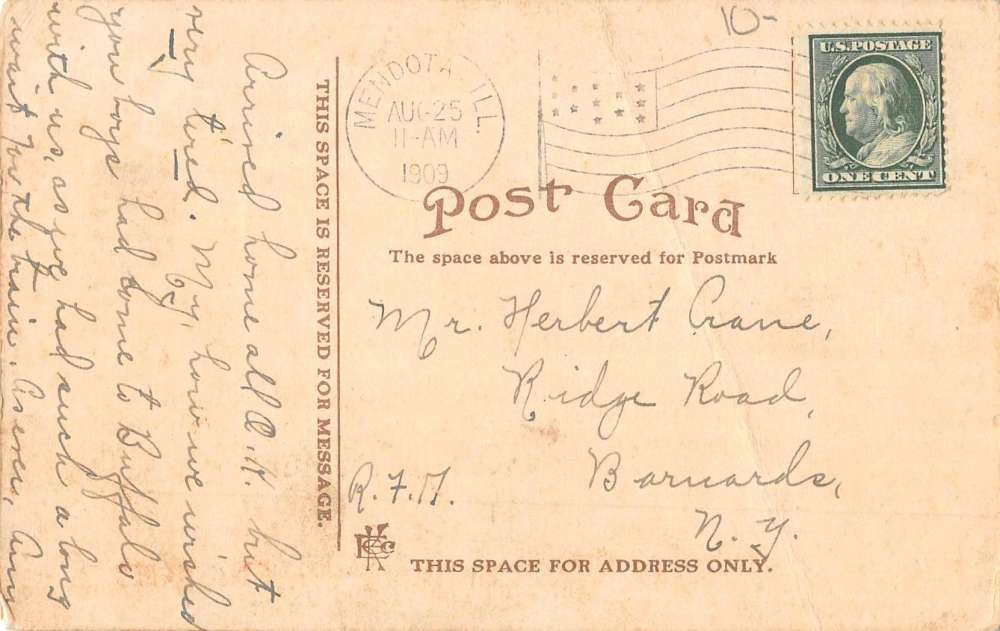 10-
U.S. POSTAGE
ONE CENT
MENDOTA, ILL.
AUG 25
11-AM
1909
Post Card
The space above is reserved for Postmark
THIS SPACE IS RESERVED FOR MESSAGE.
Arrived home all O.K. but
very tired. My, how we wished
you boys had come to Buffalo
with us, as we had such a long
wait for the train. As ever, Amy
Mr. Herbert Crane,
Ridge Road,
Barnards,
N.Y.
THIS SPACE FOR ADDRESS ONLY.